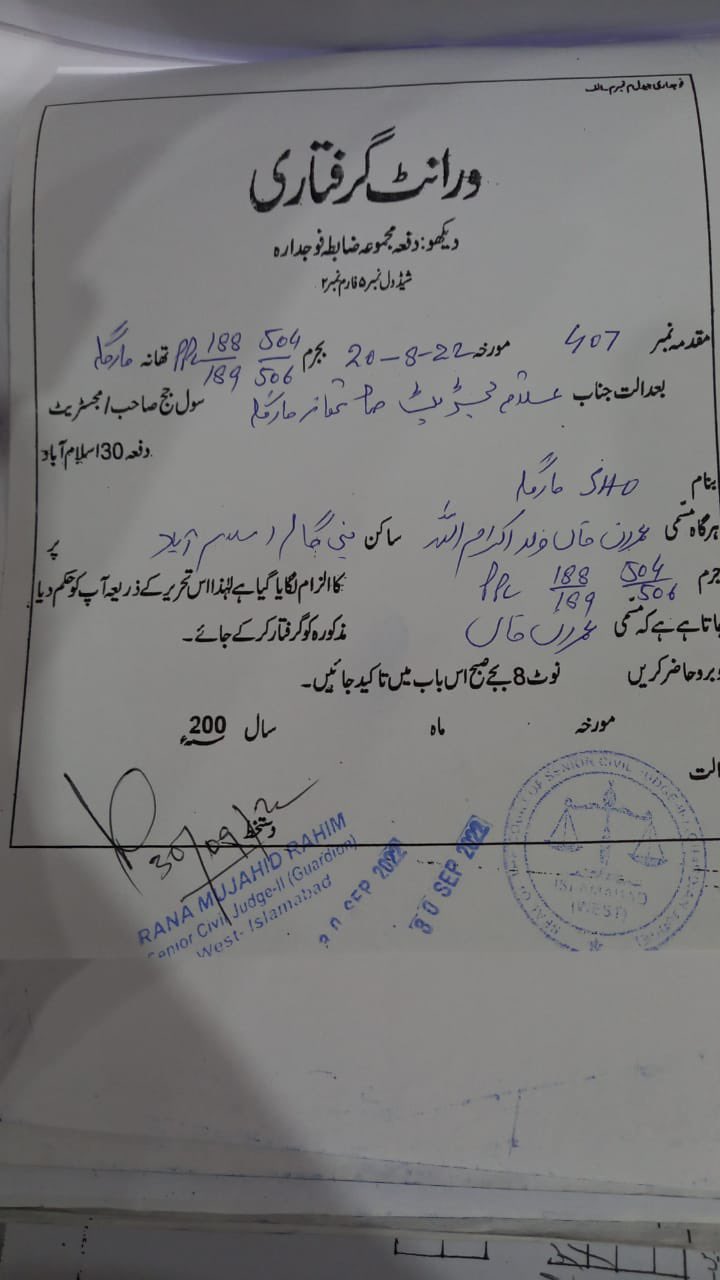 فوجداری جدول نمبر سالف
ورانٹ گرفتاری
دیکھو: دفعہ مجموعہ ضابطہ فوجدارہ
شیڈول نمبر ۵ فارم نمبر ۲
مقدمہ نمبر 407 مورخہ 20-8-22 بجرم 504/506 188/189 PPC تھانہ مارگلہ
بعدالت جناب علاقہ مجسٹریٹ صاحب تھانہ مارگلہ سول جج صاحب / مجسٹریٹ
دفعہ 30 اسلام آباد
بنام SHO مارگلہ
ہرگاہ مسمّی عمران خان ولد اکرام اللہ ساکن بنی گالہ اسلام آباد پر
جرم 504/506 188/189 PPC کا الزام لگایا گیا ہے لہٰذا اس تحریر کے ذریعہ آپ کو حکم دیا
جاتا ہے ہے کہ مسمّی عمران خان مذکورہ کو گرفتار کر کے جائے۔
وبرو حاضر کریں نوٹ 8 بجے صبح اس باب میں تاکید جائیں۔
مورخہ ماہ سال 200ء
الت
دستخط
30/09/22
RANA MUJAHID RAHIM
Senior Civil Judge-II (Guardian)
West-Islamabad
30 SEP 2022
30 SEP 2022
ISLAMABAD
(WEST)